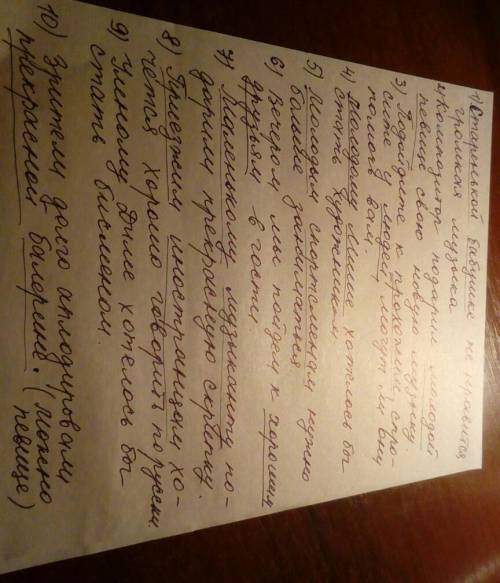 1) Старинькой бабушке не нравится
громкая музыка.
2) Композитор подарил молодой
певице свою новую музыку.
3) Подойдите к прохожим, спро-
сите у людей могут ли они
помочь вам
4) Молодому Мише хотелось бы
стать художником
5) Молодым спортсменам нужно
больше заниматься
6) Вечером мы пойдем к хорошим
друзьям в гости.
7) Маленькому музыканту по-
дарили прекрасную скрипку.
8) Приезжим иностранцам хо-
чется хорошо говорить по русски
9) Умному Диме хотелось бы
стать бисменом.
10) Зрители долго аплодировали
прекрасной балерине. (можно
певице)